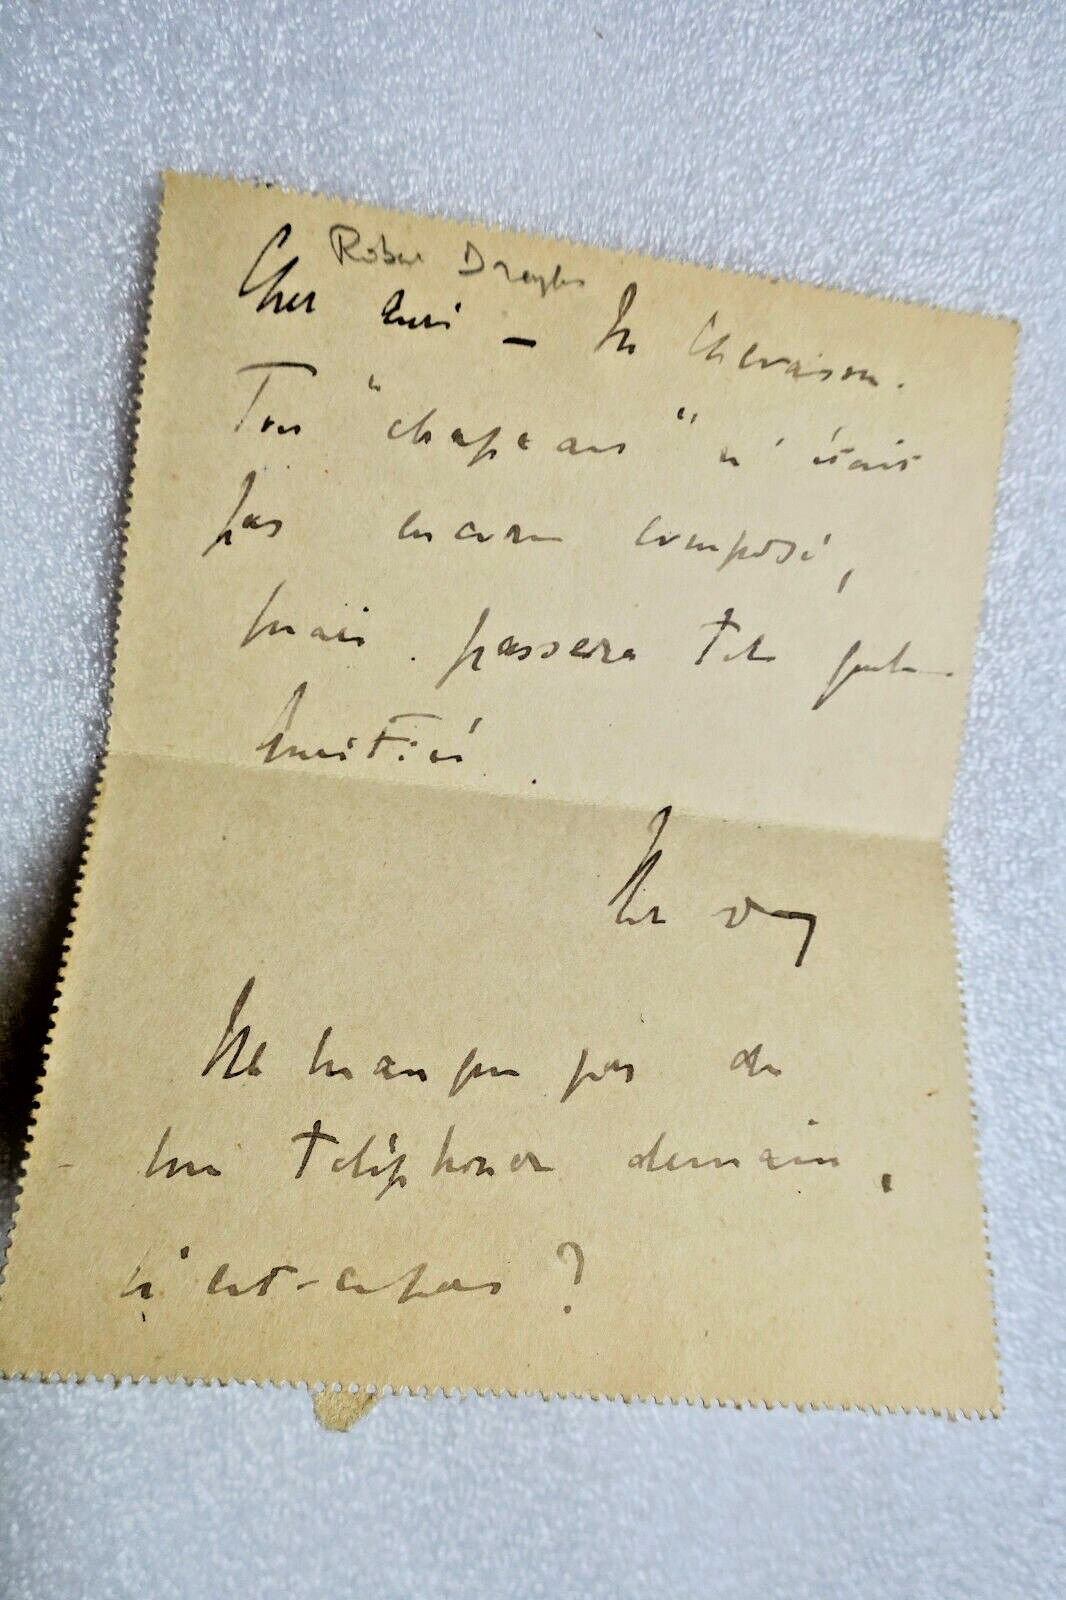 Robert Dreyfus
Cher ami –
Ton "chapeau" n'était
pas encore composé,
mais passera
Amitiés.
Ne manque pas de
me téléphoner demain,
n'est-ce pas ?